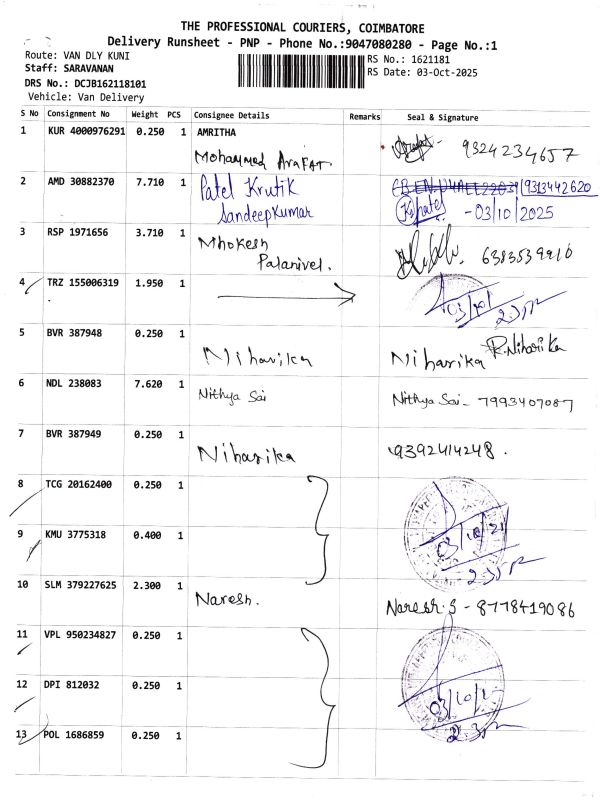 THE PROFESSIONAL COURIERS, COIMBATORE
Delivery Runsheet - PNP - Phone No.:9047080280 - Page No.:1
Route: VAN DLY KUNI
RS No.: 1621181
Staff: SARAVANAN
RS Date: 03-Oct-2025
DRS No.: DCJB162118101
Vehicle: Van Delivery
S No Consignment No Weight PCS Consignee Details Remarks Seal & Signature
1 KUR 4000976291 0.250 1 AMRITHA
Mohammed Arafat. Arafat 9324234657
2 AMD 30882370 7.710 1 Patel Krutik 9313442620
Sandeepkumar K.patel - 03/10/2025
3 RSP 1971656 3.710 1 Mhokesh
Palanivel. 6383539910
4 TRZ 155006319 1.950 1 03/10/
5 BVR 387948 0.250 1
Niharika Niharika R.Niharika
6 NDL 238083 7.620 1 Nithya Sai Nithya Sai - 7993407087
7 BVR 387949 0.250 1
Niharika 9392414248.
8 TCG 20162400 0.250 1
9 KMU 3775318 0.400 1 03/10/
10 SLM 379227625 2.300 1 Naresh. Naresh.S - 8778419086
11 VPL 950234827 0.250 1
12 DPI 812032 0.250 1 03/10/
13 POL 1686859 0.250 1